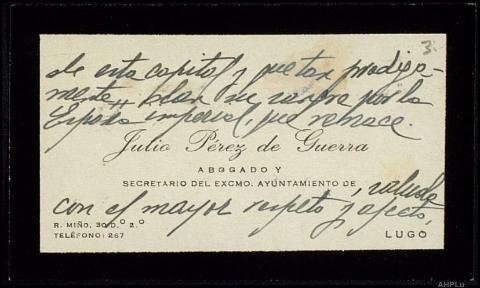 3.
de esta capital y que tan prodiga-
mente dan su sangre por la
España imperial, que renace.
Julio Pérez de Guerra
ABOGADO Y
SECRETARIO DEL EXCMO. AYUNTAMIENTO DE
, saluda
con el mayor respeto y afecto,
R. MIÑO, 30 D.º 2.º
TELÉFONO: 267
LUGO
AHPLu